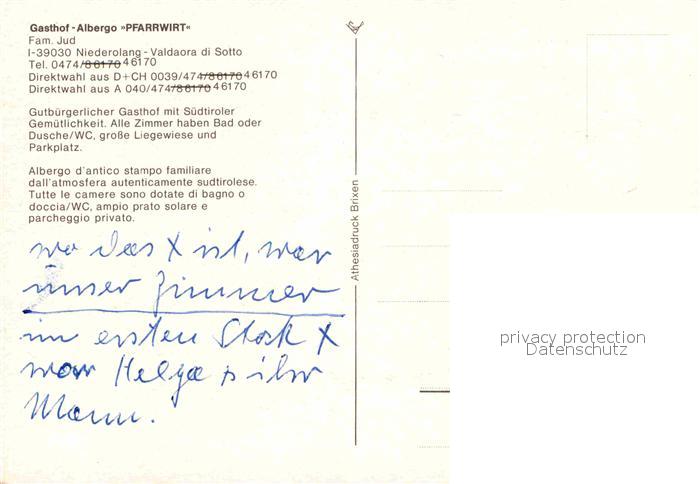 Gasthof-Albergo »PFARRWIRT«
Fam. Jud
I-39030 Niederolang-Valdaora di Sotto
Tel. 0474/86170 46170
Direktwahl aus D+CH 0039/474/86170 46170
Direktwahl aus A 040/474/86170 46170
Gutbürgerlicher Gasthof mit Südtiroler
Gemütlichkeit. Alle Zimmer haben Bad oder
Dusche/WC, große Liegewiese und
Parkplatz.
Albergo d'antico stampo familiare
dall'atmosfera autenticamente sudtirolese.
Tutte le camere sono dotate di bagno o
doccia/WC, ampio prato solare e
parcheggio privato.
wo das X ist, war
unser Zimmer
im ersten Stock X
war Helga + ihr
Mann.
Athesiadruck Brixen
privacy protection
Datenschutz